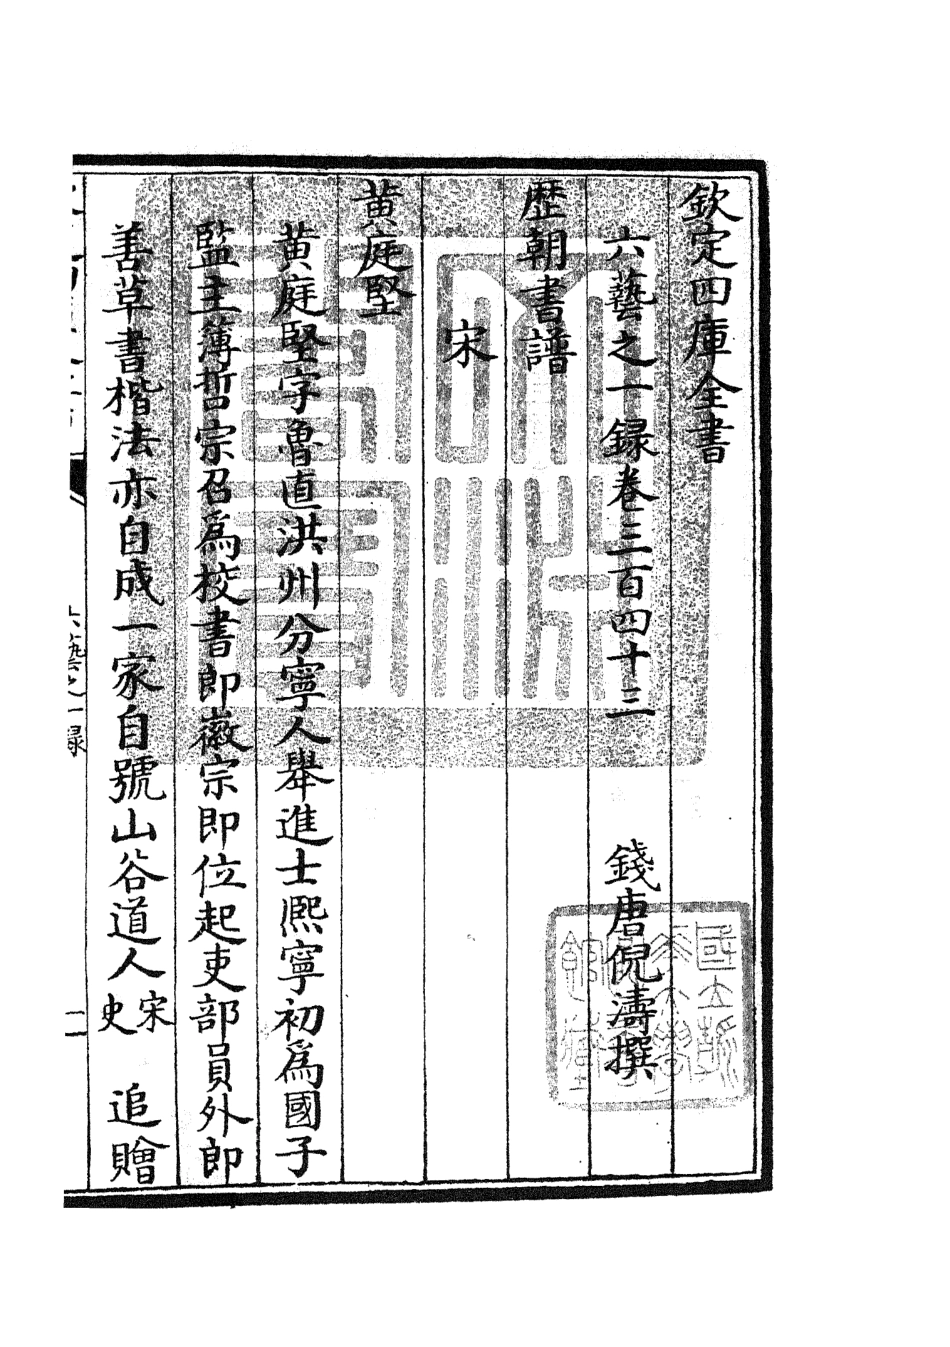 欽定四庫全書
六藝之一録卷三百四十三
錢唐倪濤撰
歴朝書譜
宋
黄庭堅
黄庭堅字魯直洪州分寧人舉進士熙寧初爲國子
監主簿哲宗召爲校書郎徽宗即位起吏部員外郎
善草書楷法亦自成一家自號山谷道人宋史 追贈
六藝之一録